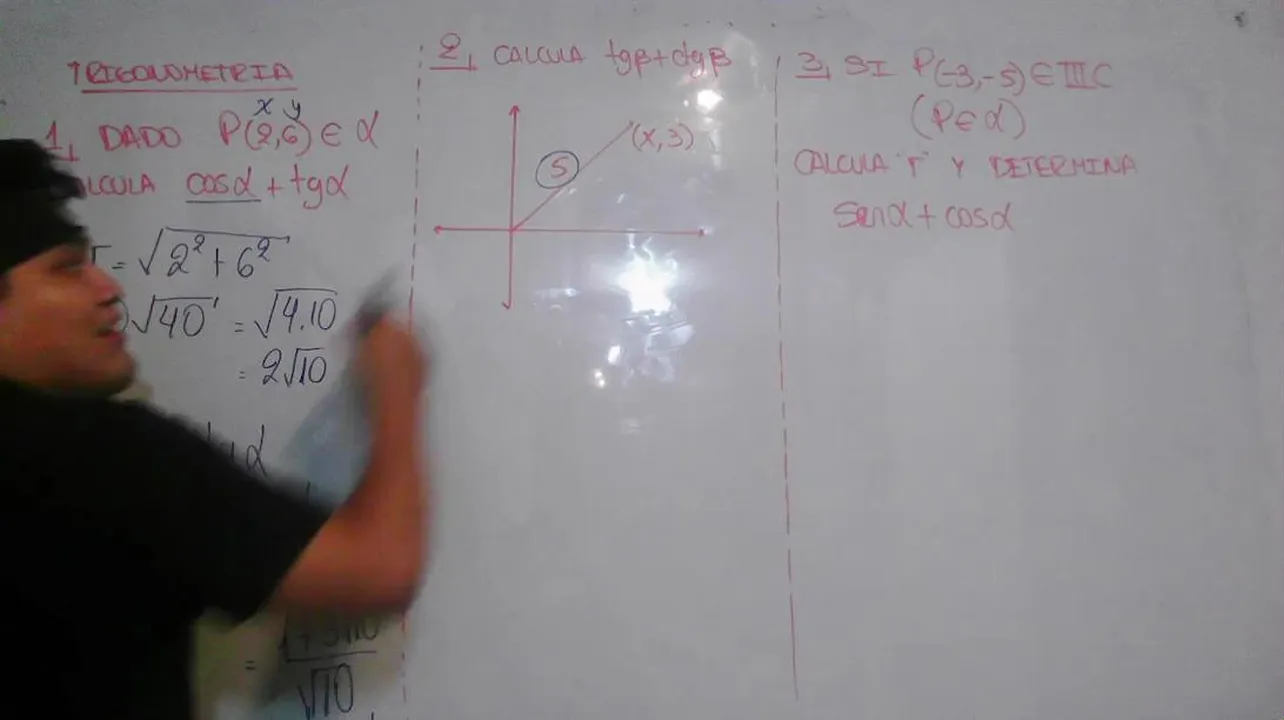 TRIGOLOMETRIA
x y
1, DADO P(2,6) ∈ α
CALCULA cosα + tgα
r = √2² + 6²
√40 = √4.10
= 2√10
α
= 1+3√10
√10
2, CALCULA tgβ + ctgβ
5
(x,3)
3, SI P(-3,-5) ∈ IIIC
(P∈α)
CALCULA "r" Y DETERMINA
senα + cosα